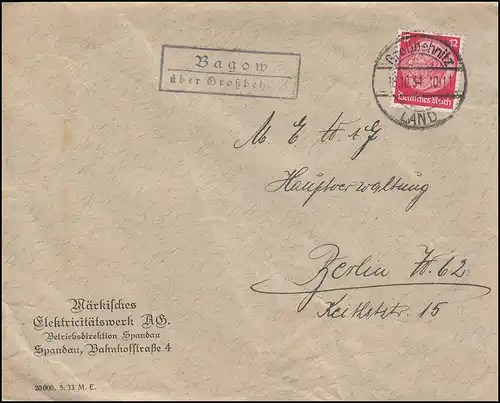 Bagow
über Großbeh
Großbehnitz
12
18.10.34.10-11
Deutsches Reich
LAND
M. E. W. A G.
Hauptverwaltung
Berlin W. 62
Keithstr. 15
Märkisches
Elektricitätswerk AG.
Betriebsdirektion Spandau
Spandau, Bahnhofstraße 4
20000. 5. 33 M. E.